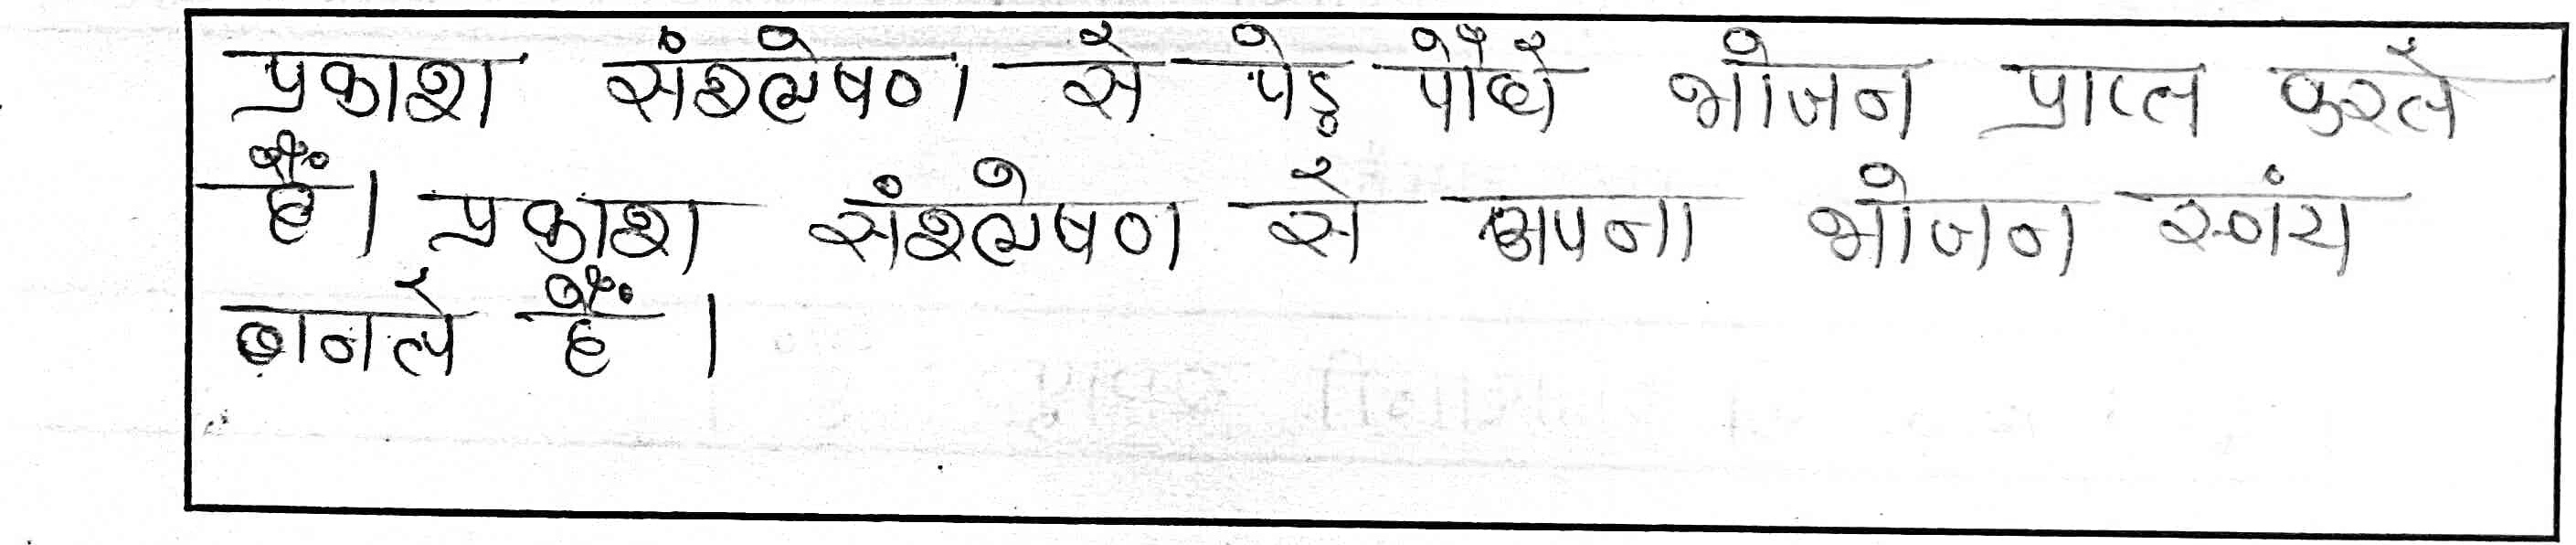 प्रकाश संश्लेषण से पेड़ पौधे भोजन प्राप्त करते
हैं। प्रकाश संश्लेषण से अपना भोजन स्वंय
बनते हैं।